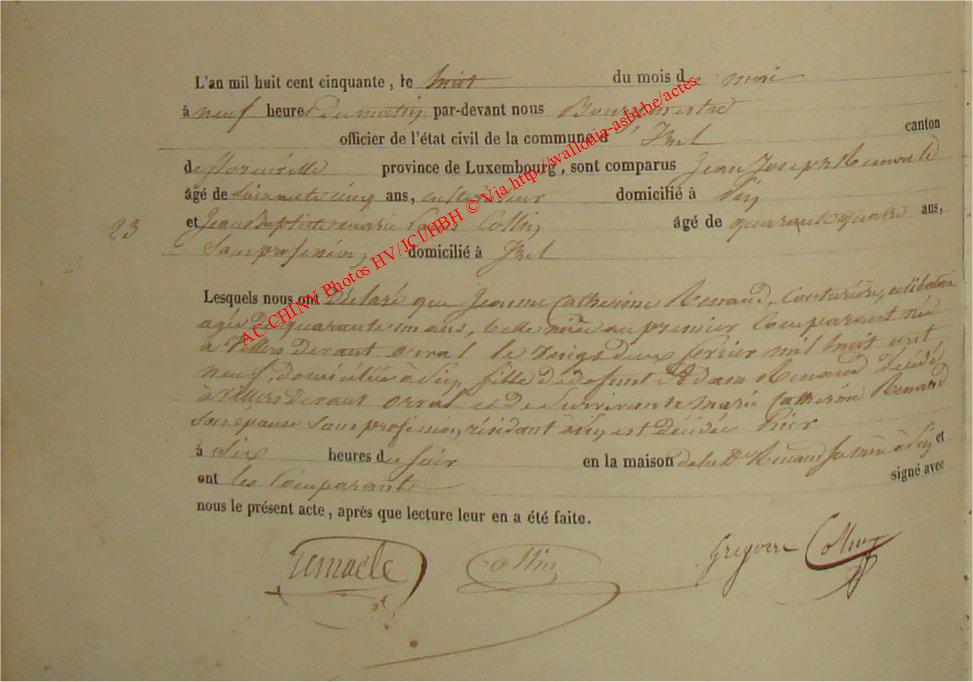 L'an mil huit cent cinquante, le huit du mois de mai
à neuf heures du matin par-devant nous Bourgmestre
officier de l'état civil de la commune d'Izel canton
de Florenville province de Luxembourg, sont comparus Jean Joseph Remacle
âgé de soixante cinq ans, cultivateur domicilié à
23 et Jean Baptiste marie Collin âgé de quarante quatre ans,
sans profession domicilié à Izel
Lesquels nous ont Déclaré que Jeanne Catherine Renaud, Couturière, célibataire
agée de quarante un ans, belle au premier Comparant née
à Villers devant orval le vingt deux février mil huit cent
neuf, domiciliée à fille de defunt Adam Renaud Décédé
à Villers devant orval et de Survivante marie Catherine Renaud
son épouse sans profession, résidant à est decedée hier
à Six heures du soir en la maison de la Renaud sa mère à et
ont les Comparants signé avec
nous le présent acte, après que lecture leur en a été faite.
remacle Collin Gregoire Collin
AC CHINY Photos HV/JCI/HBH © Via http://wallonia-asbl.be/actes